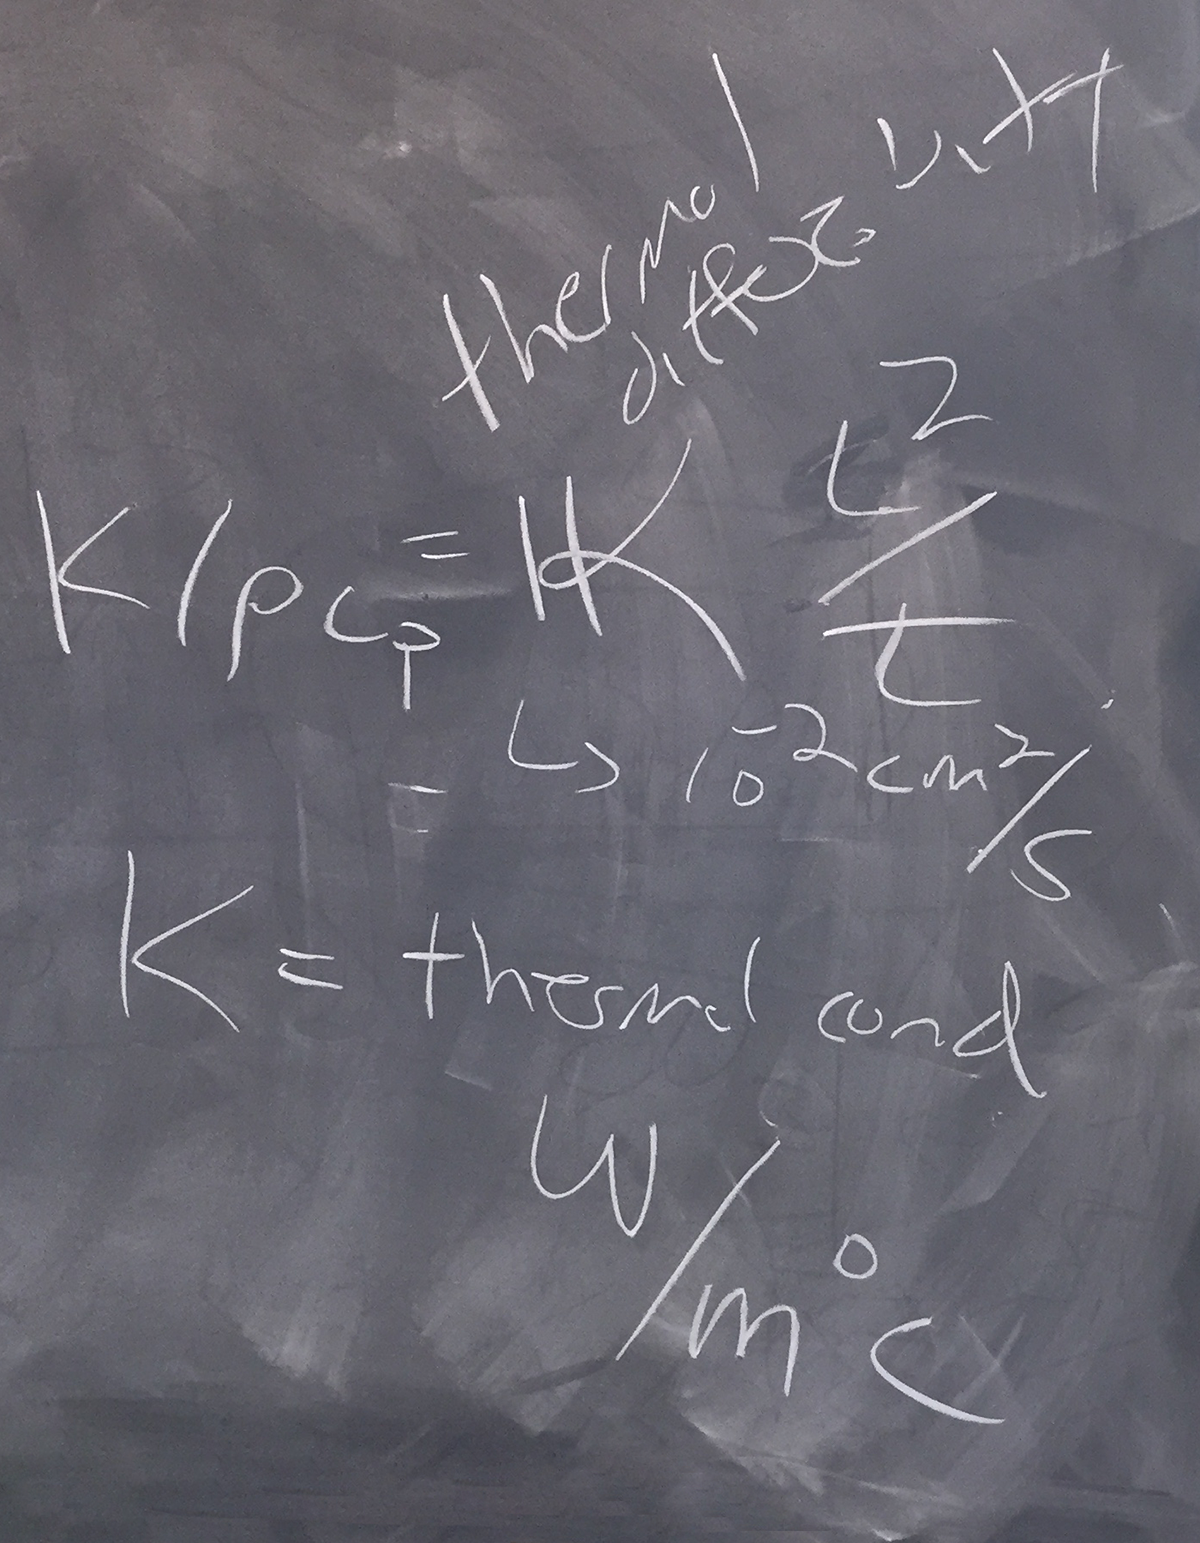 thermal
diffusivity
K/ρcₚ = 𝕂 L²/t
↳ 10⁻² cm²/s
K = thermal cond
W/m°C